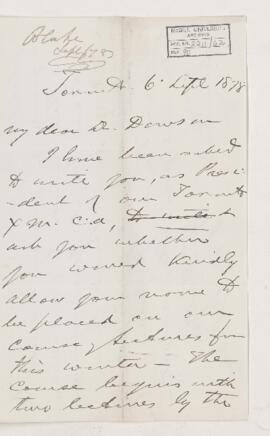 Blake
Sept 6/78
McGILL UNIVERSITY
ARCHIVES
ACC. NO. 2211/62
REF.
Toronto. 6 Sept 1878
My dear Dr. Dawson
I have been asked
to write you, as Presi-
-dent of our Toronto
Y M. C. A, to
ask you whether
you would kindly
allow your name to
be placed on our
course of lectures for
this winter – The
course begins with
two lectures by the